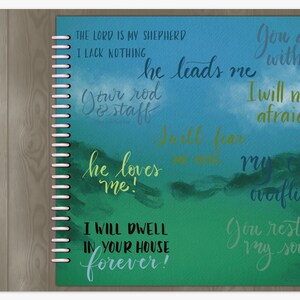 THE LORD IS MY SHEPHERD
I LACK NOTHING
You a
with
he leads me
Your rod
& staff
I will n
afraid
I will fear
no evil
he loves
me!
my c
overflo
I WILL DWELL
IN YOUR HOUSE
forever!
You rest
my so